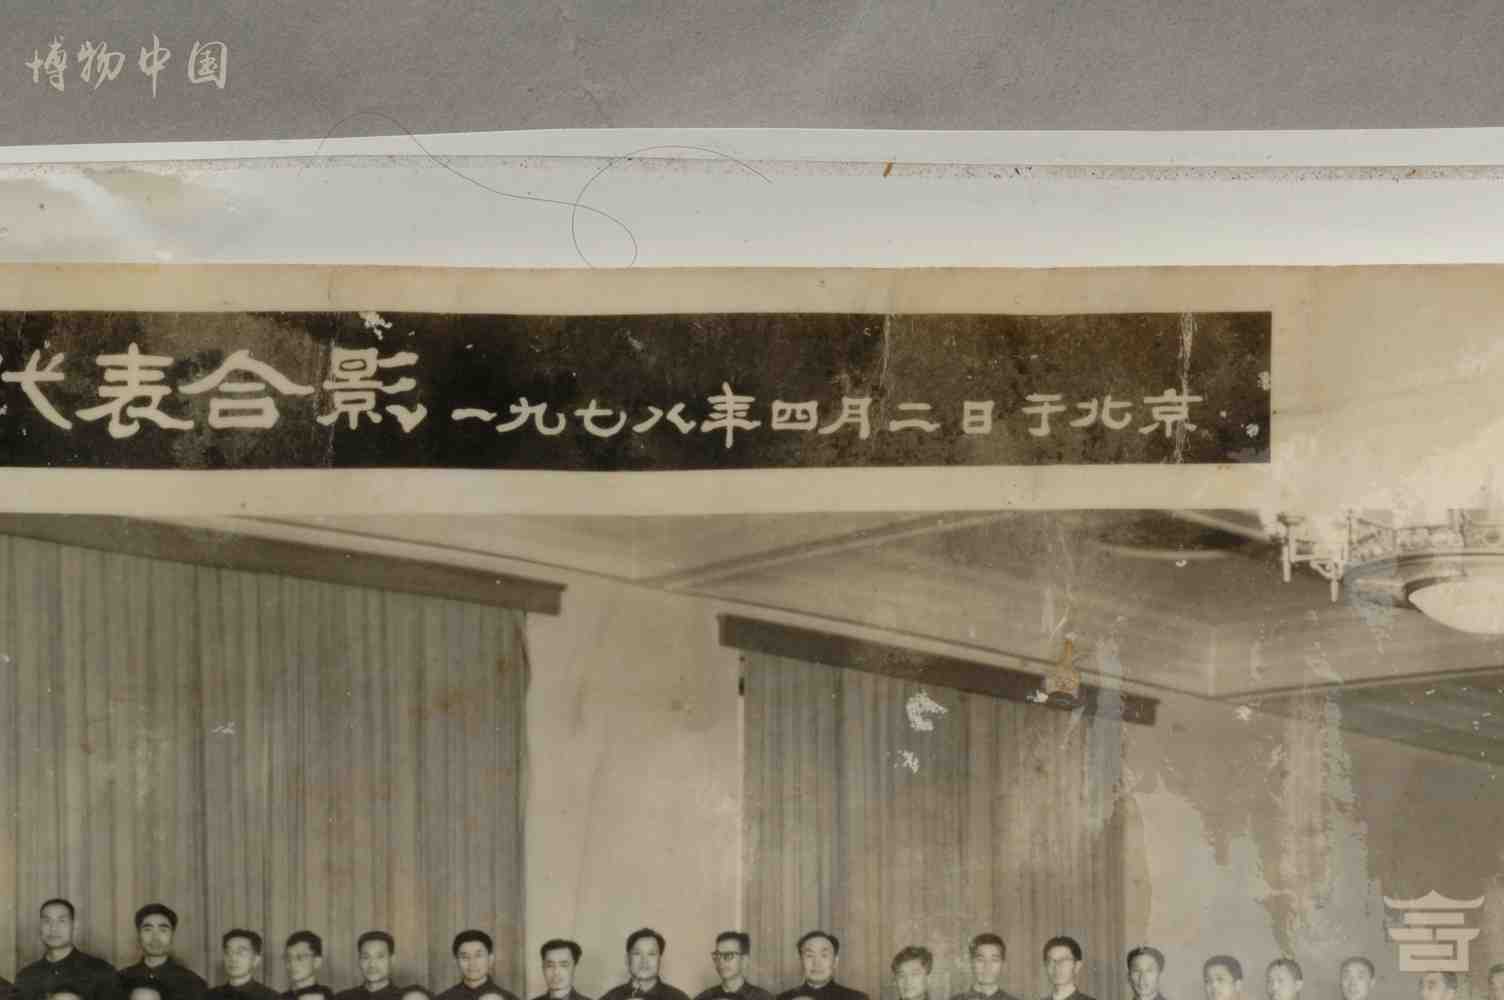 博物中国
代表合影 一九七八年四月二日于北京